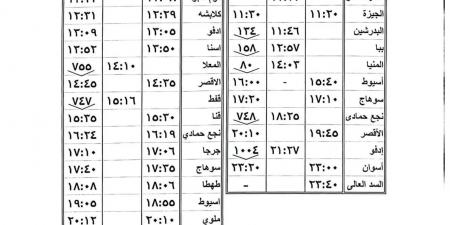 الجيزة ١١:٢٠ ١١:٣٠
البدرشين ١١:٤٦ ١٣٤
ببا ١٣:٥٧ ١٥٨
المنيا ١٤:٠٣ ٨٠
أسيوط ١٥:٤٠ - ١٦:٠٠
سوهاج ١٧:١٠ ١٧:٢٠
نجع حمادى ١٨:٢٥ ٧٤٨
الأقصر ١٩:٤٥ ٢٠:١٠
إدفو ٢١:٢٧ ١٠٠٤
أسوان ٢٣:٠٠ ٢٣:٢٠
السد العالى ٢٣:٤٠ -
كلابشه ١٢:٢٩ ١٢:٣١
ادفو ١٣:٠٥ ١٣:٠٩
اسنا ١٣:٥٠ ١٣:٥٢
المعلا ١٤:١٠ ٧٥٥
الاقصر ١٤:٣٥ ١٤:٤٥
قفط ١٥:١٦ ٧٤٧
قنا ١٥:٣٠ ١٥:٣٥
نجع حمادي ١٦:١٩ ١٦:٢٤
جرجا ١٧:٠٦ ١٧:١٠
سوهاج ١٧:٣٥ ١٧:٤٠
طهطا ١٨:٠٦ ١٨:٠٨
اسيوط ١٨:٥٥ ١٩:٠٥
ملوي ٢٠:١٠ ٢٠:١٢